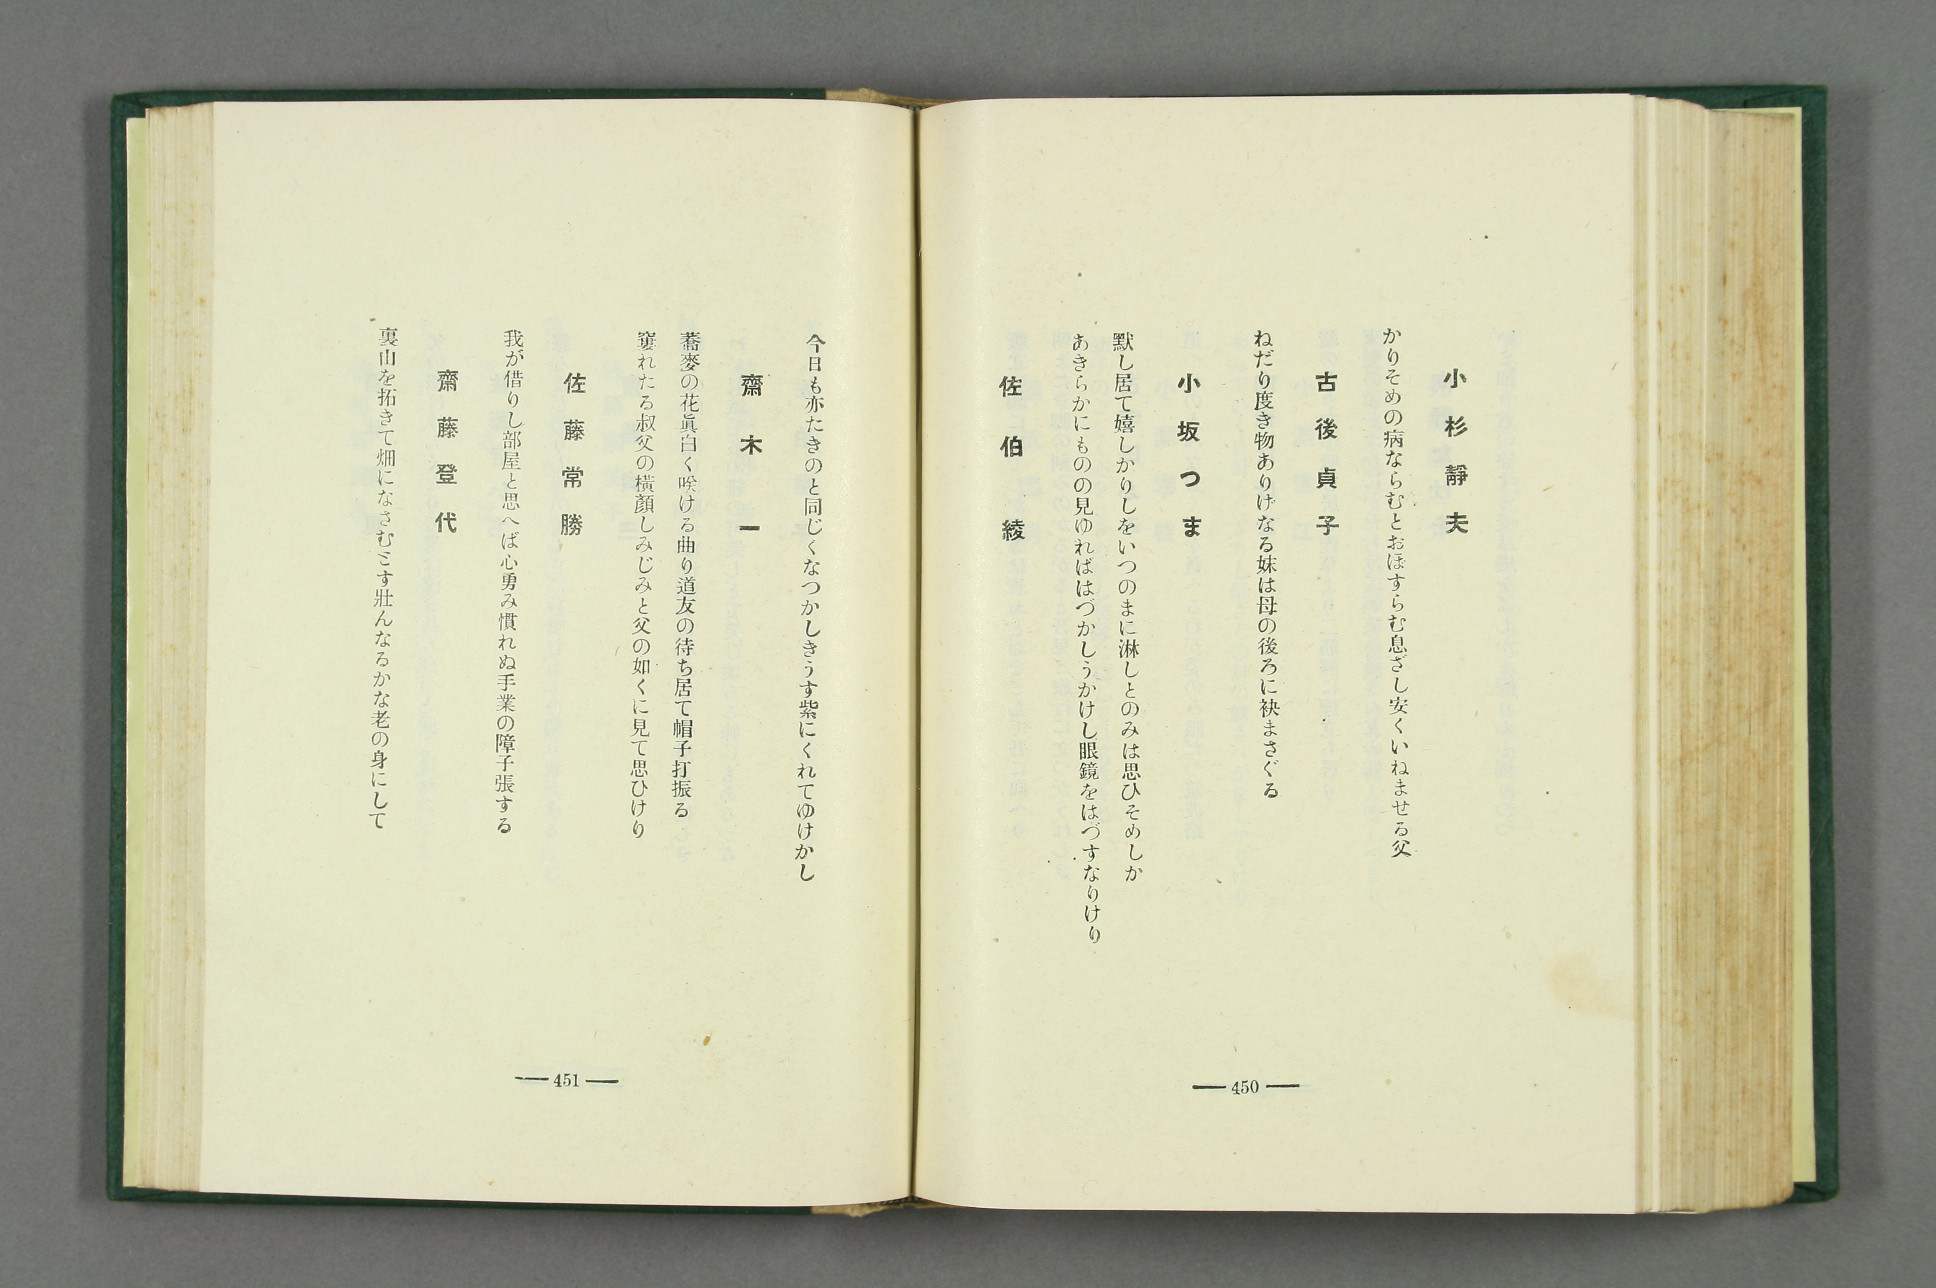 小杉靜夫
かりそめの病ならむとおぼすらむ息ざし安くいねませる父
古後貞子
ねだり度き物ありげなる妹は母の後ろに袂まさぐる
小坂つま
默し居て嬉しかりしをいつのまに淋しとのみは思ひそめしか
あきらかにものの見ゆればはづかしうかけし眼鏡をはづすなりけり
佐伯綾
— 450 —
今日も亦たきのと同じくなつかしきうす紫にくれてゆけかし
齋木一
蕎麥の花眞白く咲ける曲り道友の待ち居て帽子打振る
窶れたる叔父の横顏しみじみと父の如くに見て思ひけり
佐藤常勝
我が借りし部屋と思へば心勇み慣れぬ手業の障子張する
齋藤登代
裏山を拓きて畑になさむとす壯んなるかな老の身にして
— 451 —